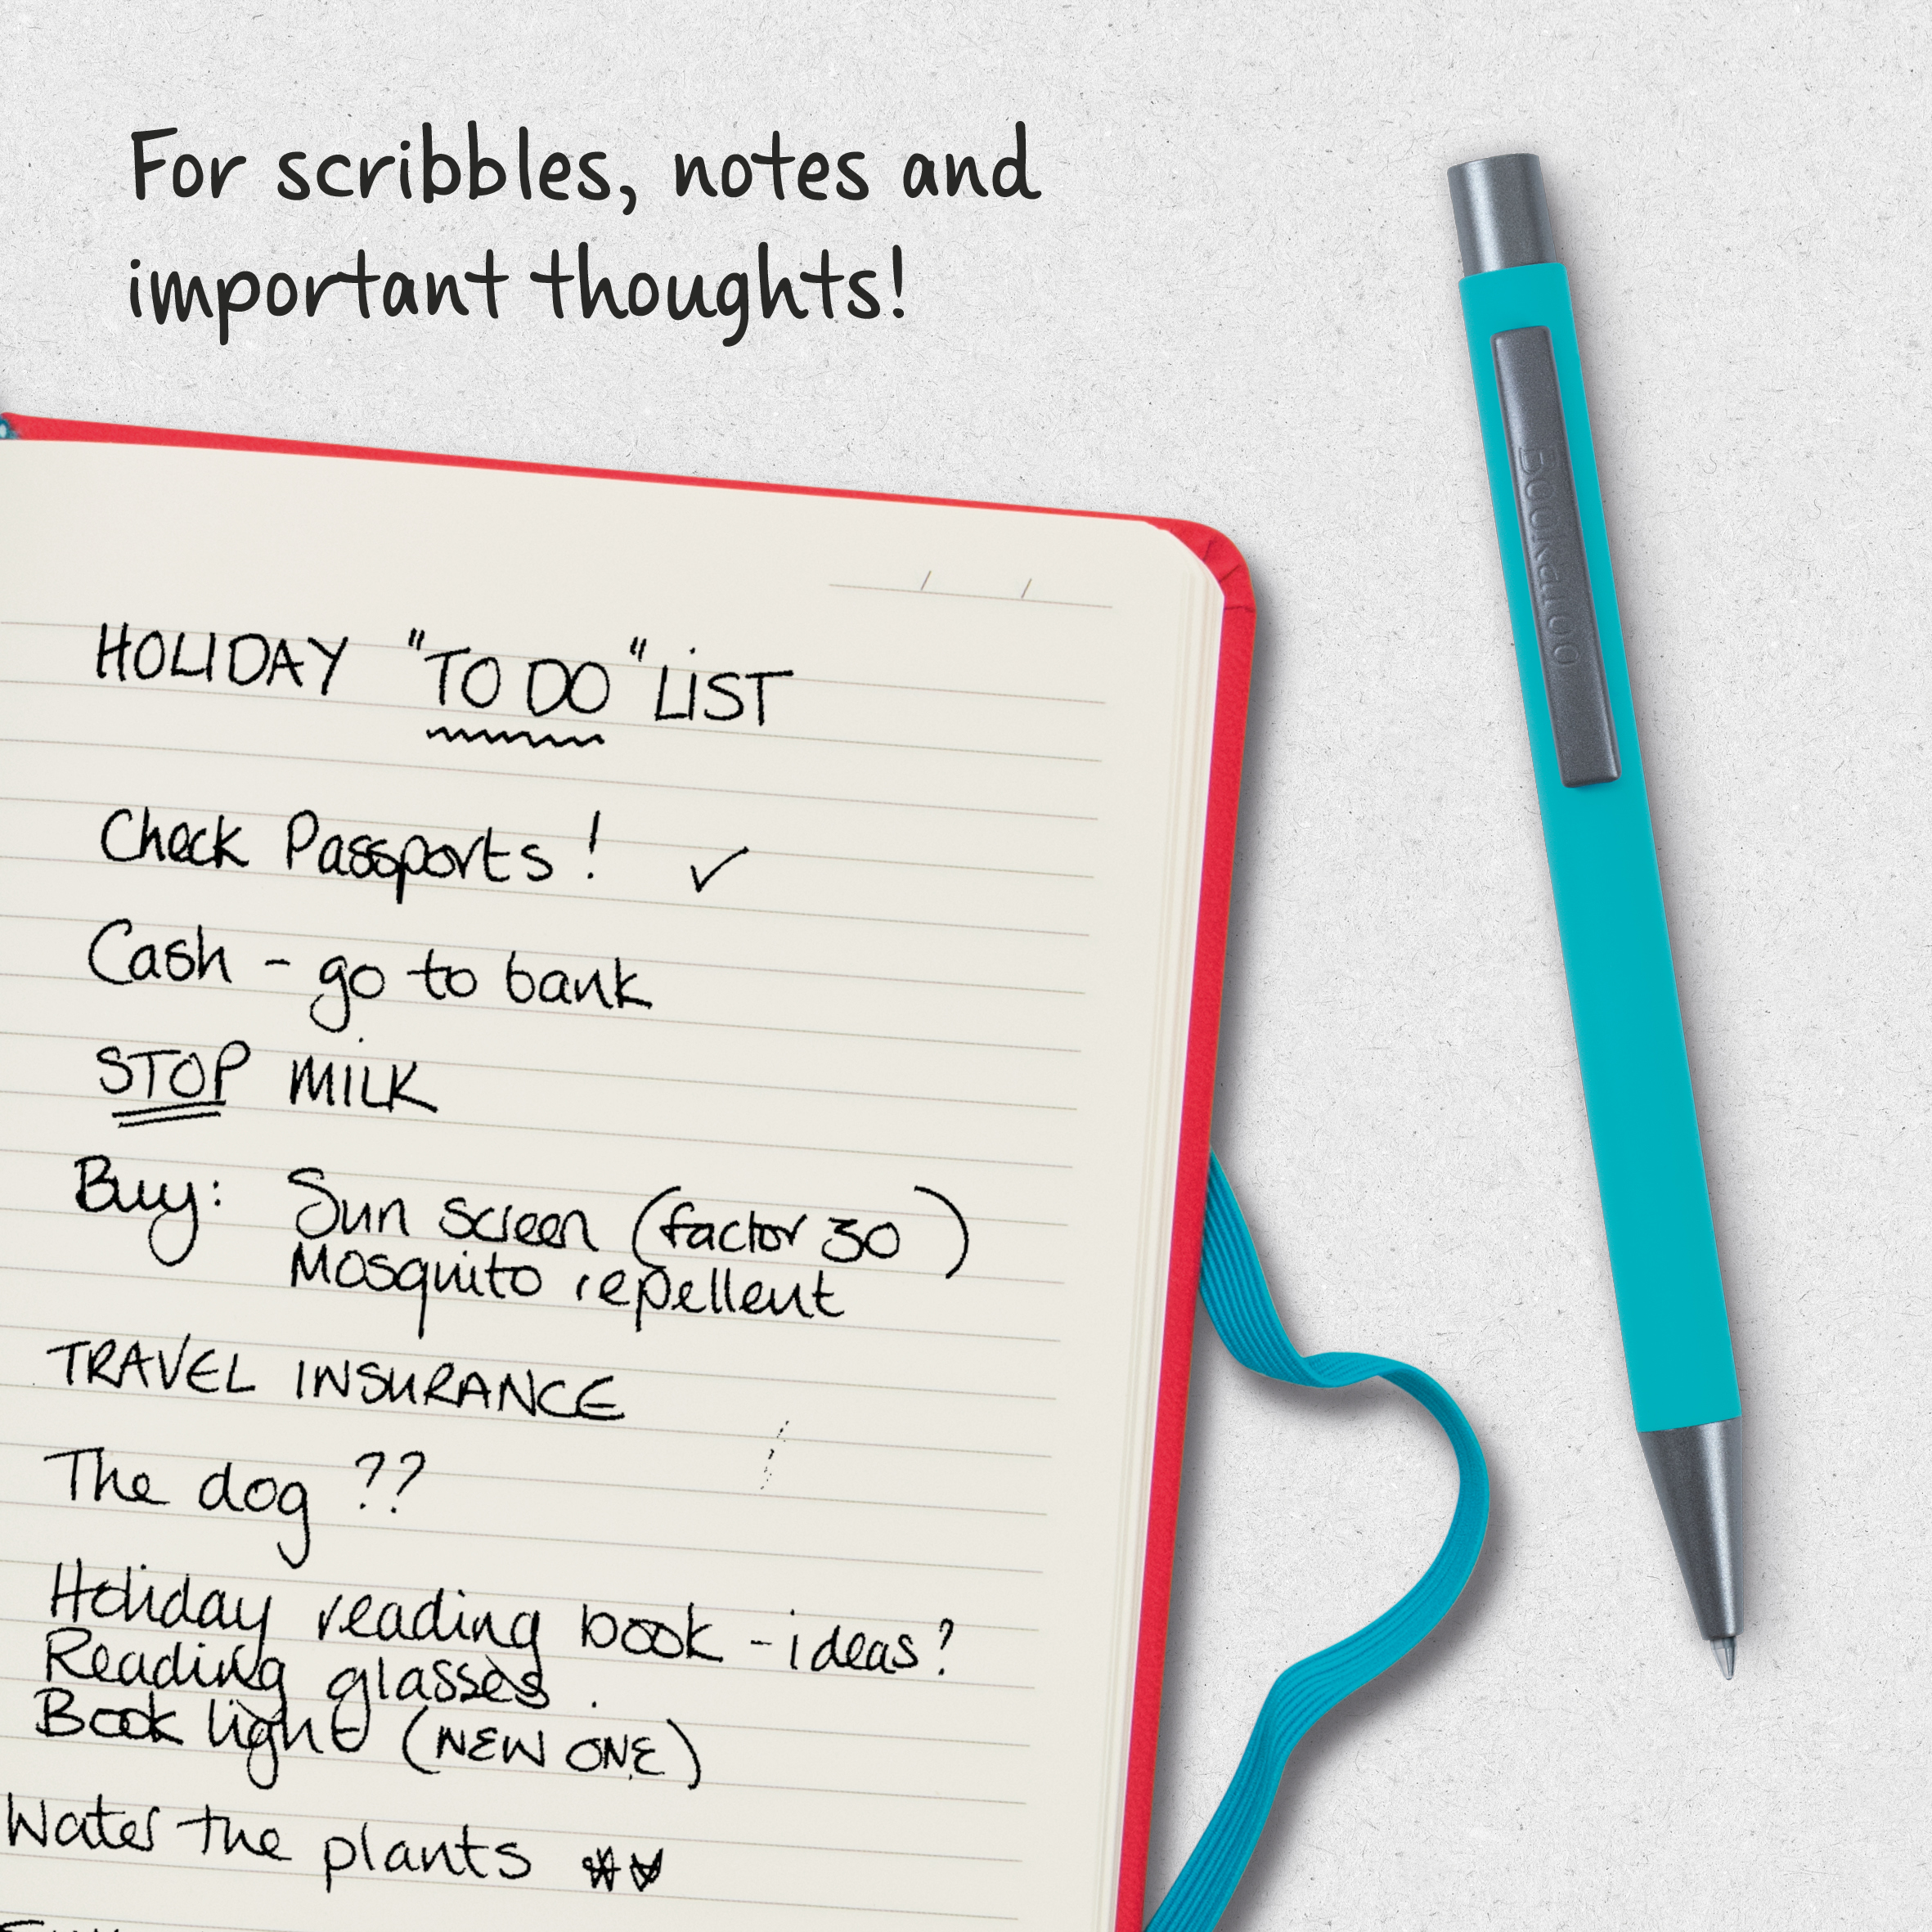 For scribbles, notes and
important thoughts!
Bookaroo
HOLIDAY "TO DO" LIST
Check Passports! ✓
Cash - go to bank
STOP MILK
Buy: Sun screen (factor 30)
Mosquito repellent
TRAVEL INSURANCE
The dog ??
Holiday reading book - ideas?
Reading glasses.
Book light (NEW ONE)
Water the plants